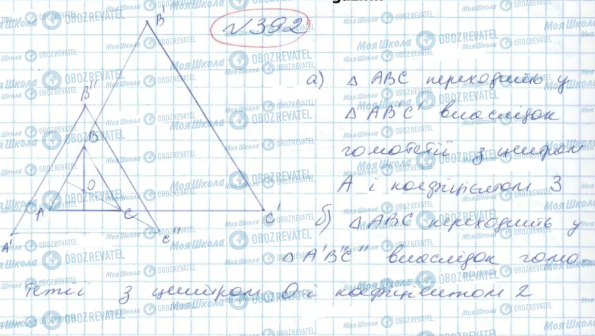 № 392
B'
B''
B
O
A
C
C'
A'
C''
а) △ ABC переходить у
△ AB'C' внаслідок
гомотетії з центром
A і коефіцієнтом 3
б) △ABC переходить у
△ A'B''C'' внаслідок гомо
тетії з центром O і коефіцієнтом 2
МояШкола
OBOZREVATEL